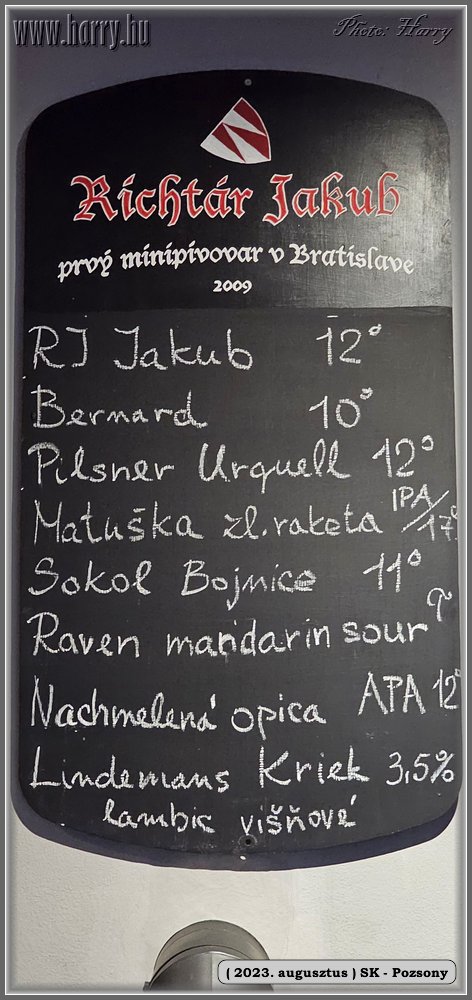 www.harry.hu
Photo: Harry
Richtár Jakub
prvý minipivovar v Bratislave
2009
RJ Jakub 12°
Bernard 10°
Pilsner Urquell 12°
Matuška zl. raketa IPA/17°
Sokol Bojnice 11°
Raven mandarin sour
Nachmelená opica APA 12°
Lindemans Kriek 3,5%
lambic višňové
( 2023. augusztus ) SK - Pozsony